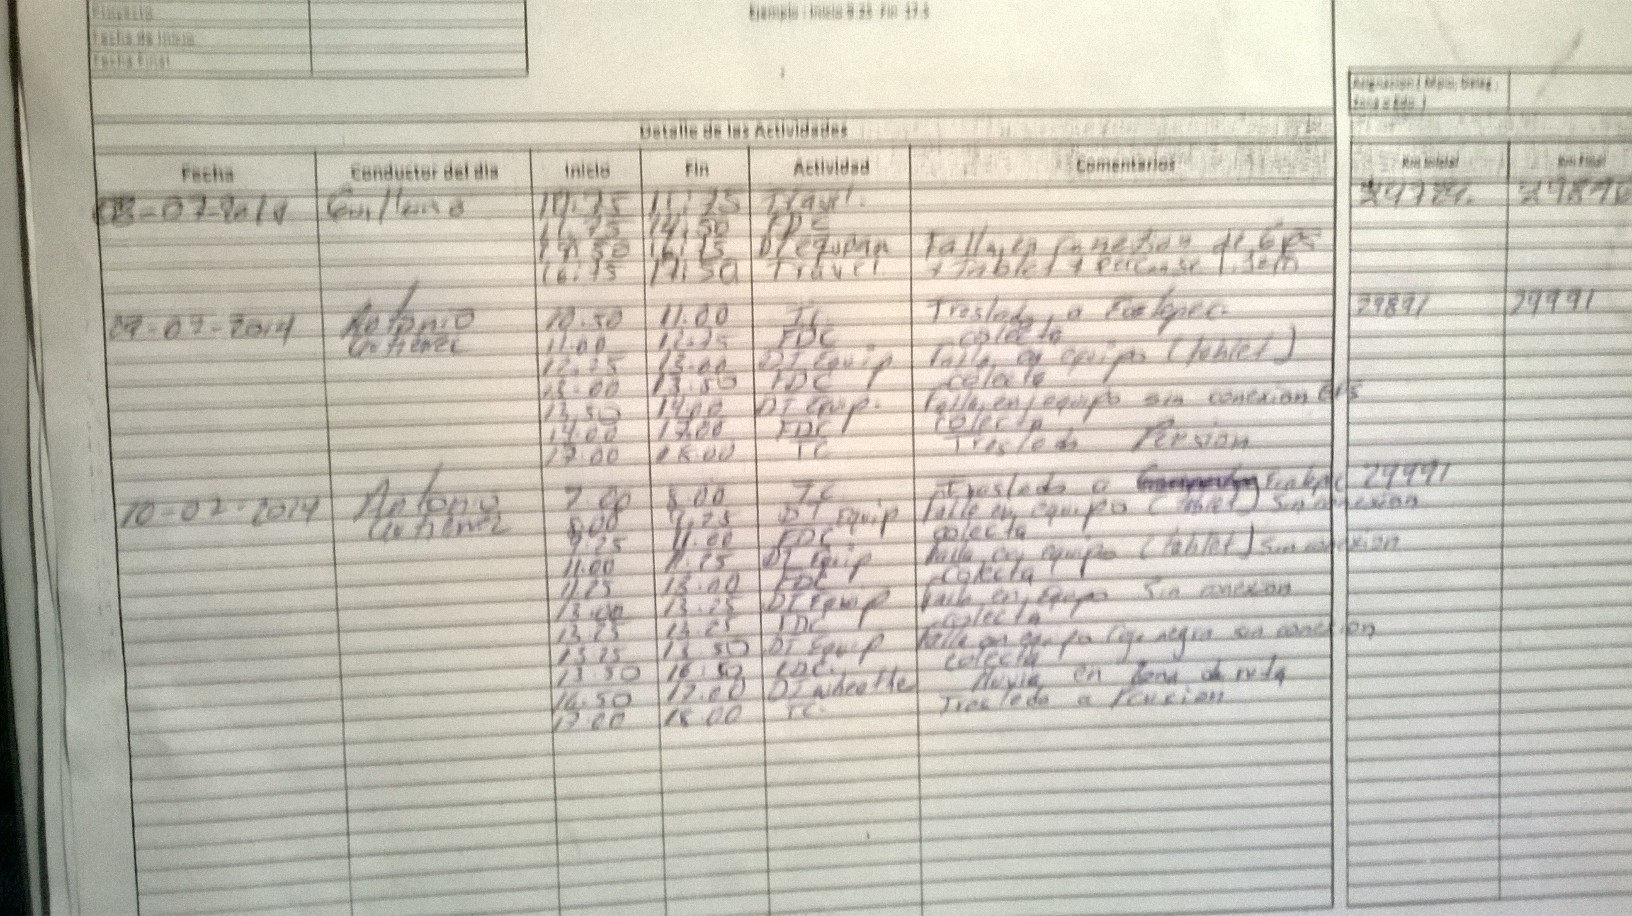 Proyecto
Fecha de Inicio
Fecha Final
Ejemplo : Inicio 9.25 Fin 17.5
Detalle de las Actividades
Fecha Conductor del dia Inicio Fin Actividad Comentarios Km Inicial Km Final
08-07-2014 Guillermo 10.75 11.75 Travel.
11.75 14.50 FDC
14.50 16.75 DT equipam Falla en conexion de GPS
16.75 17.50 Travel
09-07-2014 Antonio 10.50 11.00 TC Traslado a Ecatepec 29891 29991
Gutierrez 11.00 12.75 FDC colecta
12.75 13.00 DT Equip falla en equipo (tablet)
13.00 13.50 FDC colecta
13.50 14.00 DT Equip. falla en equipo sin conexion GPS
14.00 17.00 FDC colecta
17.00 18.00 TC Traslado Pension
10-07-2014 Antonio 7.00 8.00 TC Traslado a Ecatepec 29991
Gutierrez 8.00 9.25 DT Equip falla en equipo (tablet) sin conexion
9.25 11.00 FDC colecta
11.00 11.75 DT Equip falla en equipo (tablet) sin conexion
11.75 13.00 FDC colecta
13.00 13.25 DT Equip falla en equipo sin conexion
13.25 FDC colecta
13.50 DT Equip falla en equipo caja negra sin conexion
13.50 16.50 FDC. colecta
16.50 17.00 DT lluvia en zona de ruta
17.00 18.00 TC. Traslado a Pension